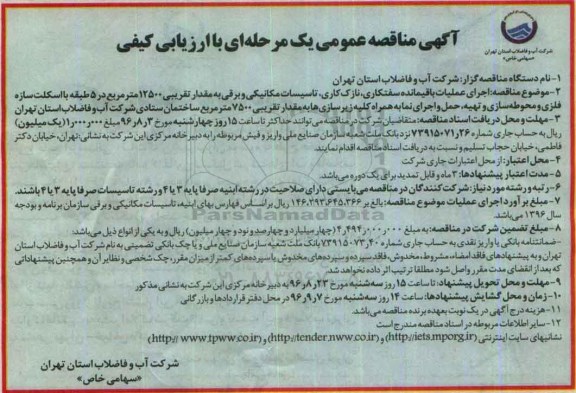 شرکت آب و فاضلاب استان تهران
«سهامی خاص»
آگهی مناقصه عمومی یک مرحله‌ای با ارزیابی کیفی
۱- نام دستگاه مناقصه گزار: شرکت آب و فاضلاب استان تهران
۲- موضوع مناقصه: اجرای عملیات باقیمانده سفتکاری، نازک کاری، تاسیسات مکانیکی و برقی به مقدار تقریبی ۱۲۵۰۰ مترمربع در ۵ طبقه با اسکلت سازه
فلزی و محوطه سازی و تهیه، حمل و اجرای نما به همراه کلیه زیرسازی ها به مقدار تقریبی ۷۵۰۰ مترمربع ساختمان ستادی شرکت آب و فاضلاب استان تهران
۳- مهلت و محل دریافت اسناد مناقصه: متقاضیان شرکت در مناقصه می توانند حداکثر تا ساعت ۱۵ روز چهارشنبه مورخ ۹۶٫۸٫۳ مبلغ ۱٫۰۰۰٫۰۰۰ (یک میلیون)
ریال به حساب جاری شماره ۷۳۹۱۵۰۷۱٫۲۶ نزد بانک ملت شعبه سازمان صنایع ملی واریز و فیش مربوطه را به دبیرخانه مرکزی این شرکت به نشانی: تهران، خیابان دکتر
فاطمی، خیابان حجاب تسلیم و نسبت به دریافت اسناد مناقصه اقدام نمایند.
۴- محل اعتبار: از محل اعتبارات جاری شرکت
۵- مدت اعتبار پیشنهادها: ۳ ماه و قابل تمدید برای یک دوره می باشد.
۶- رتبه و رشته مورد نیاز: شرکت کنندگان در مناقصه می بایستی دارای صلاحیت در رشته ابنیه صرفا پایه ۳ یا ۴ و رشته تاسیسات صرفا پایه ۳ یا ۴ باشند.
۷- مبلغ برآورد اجرای عملیات موضوع مناقصه: بالغ بر ۱۴۶٫۲۹۳٫۶۴۵٫۳۶۶ ریال براساس فهارس بهای ابنیه، تاسیسات مکانیکی و برقی سازمان برنامه و بودجه
سال ۱۳۹۶ می باشد.
۸- مبلغ تضمین شرکت در مناقصه: به مبلغ ۴٫۴۹۴٫۰۰۰٫۰۰۰ (چهار میلیارد و چهارصد و نود و چهار میلیون) ریال و به یکی از انواع ذیل می باشد:
-ضمانتنامه بانکی یا واریز نقدی به حساب جاری شماره ۷۳۹۱۵۰۷۳٫۴۰ بانک ملت شعبه سازمان صنایع ملی و یا چک بانکی تضمینی به نام شرکت آب و فاضلاب استان
تهران و به پیشنهادهای فاقد امضاء، مشروط، مخدوش، فاقد سپرده و سپرده های مخدوش یا سپرده های کمتر از میزان مقرر، چک شخصی و نظایر آن و همچنین پیشنهاداتی
که بعد از انقضای مدت مقرر واصل شود مطلقا ترتیب اثر داده نخواهد شد.
۹- مهلت و محل تحویل پیشنهاد: تا ساعت ۱۵ روز سه شنبه مورخ ۹۶٫۸٫۲۳ به دبیرخانه مرکزی این شرکت به نشانی مذکور
۱۰- زمان و محل گشایش پیشنهادها: ساعت ۱۴ روز سه شنبه مورخ ۹۶٫۹٫۷ در محل دفتر قراردادها و بازرگانی
۱۱- هزینه درج آگهی در یک نوبت بعهده برنده مناقصه می باشد.
۱۲- سایر اطلاعات مربوطه در اسناد مناقصه مندرج است
نشانیهای سایت اینترنتی (http://iets.mporg.ir) و (http://tender.nww.co.ir) و (http:// www.tpww.co.ir)
شرکت آب و فاضلاب استان تهران
«سهامی خاص»
ParsNamadData